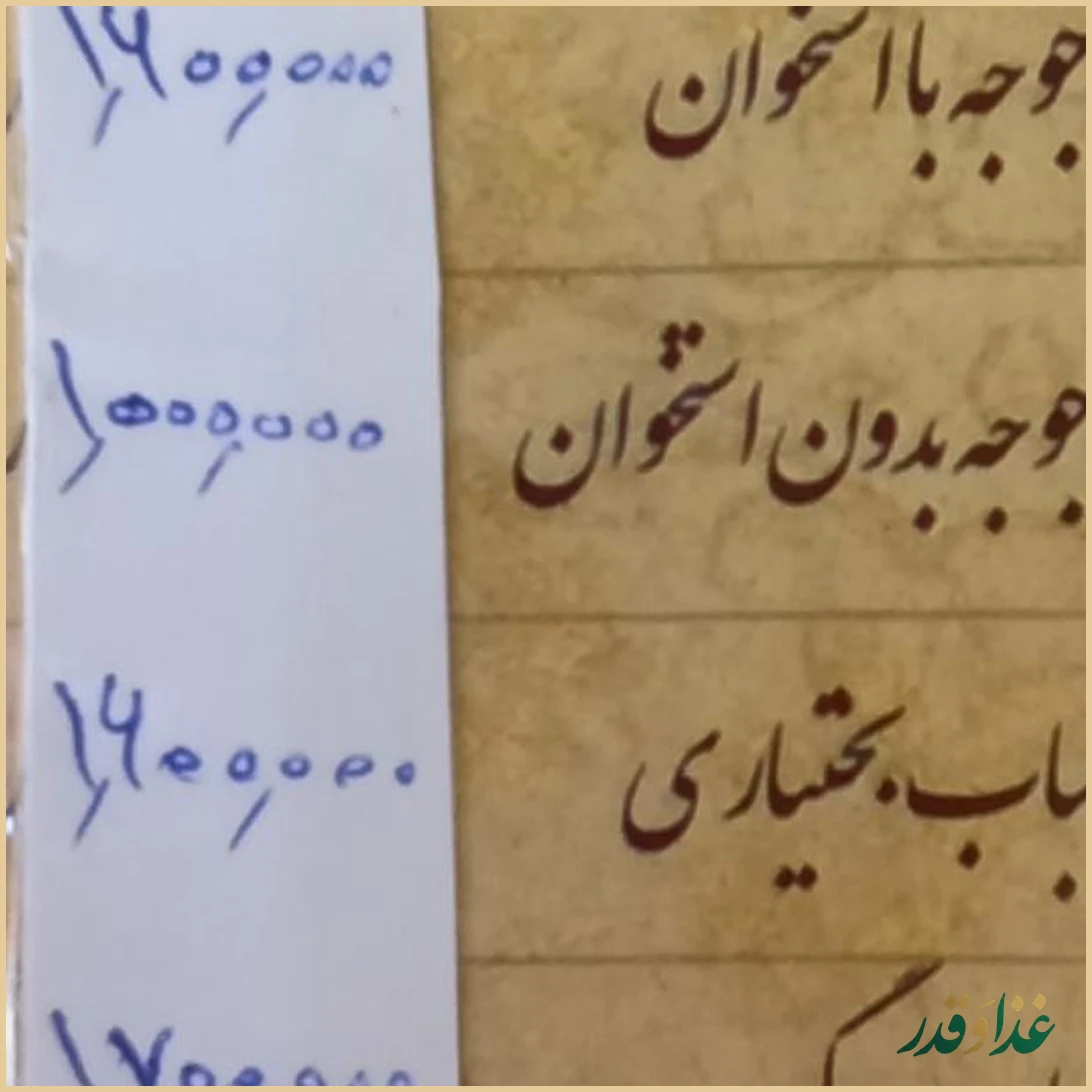 جوجه با استخوان ۱,۶۰۰,۰۰۰
جوجه بدون استخوان
باب بختیاری ۱,۶۰۰,۰۰۰
غذا و قدر